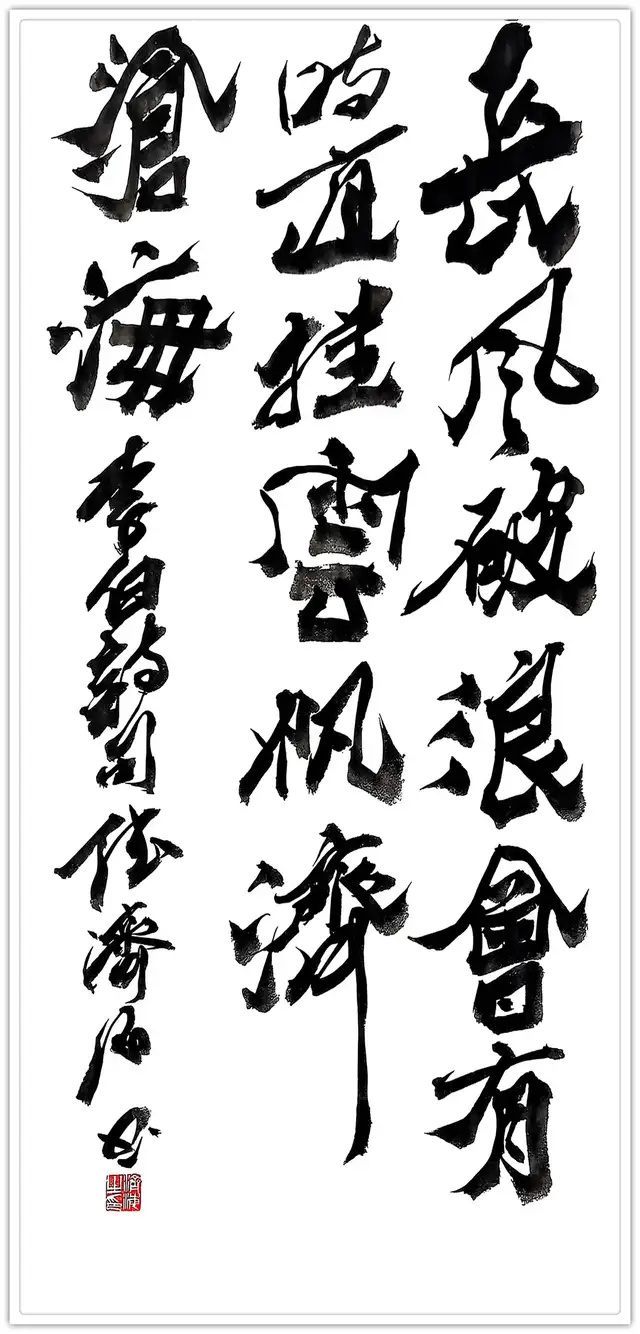 長風破浪會有
時直挂雲帆濟
滄海 李白詩句 濟 书